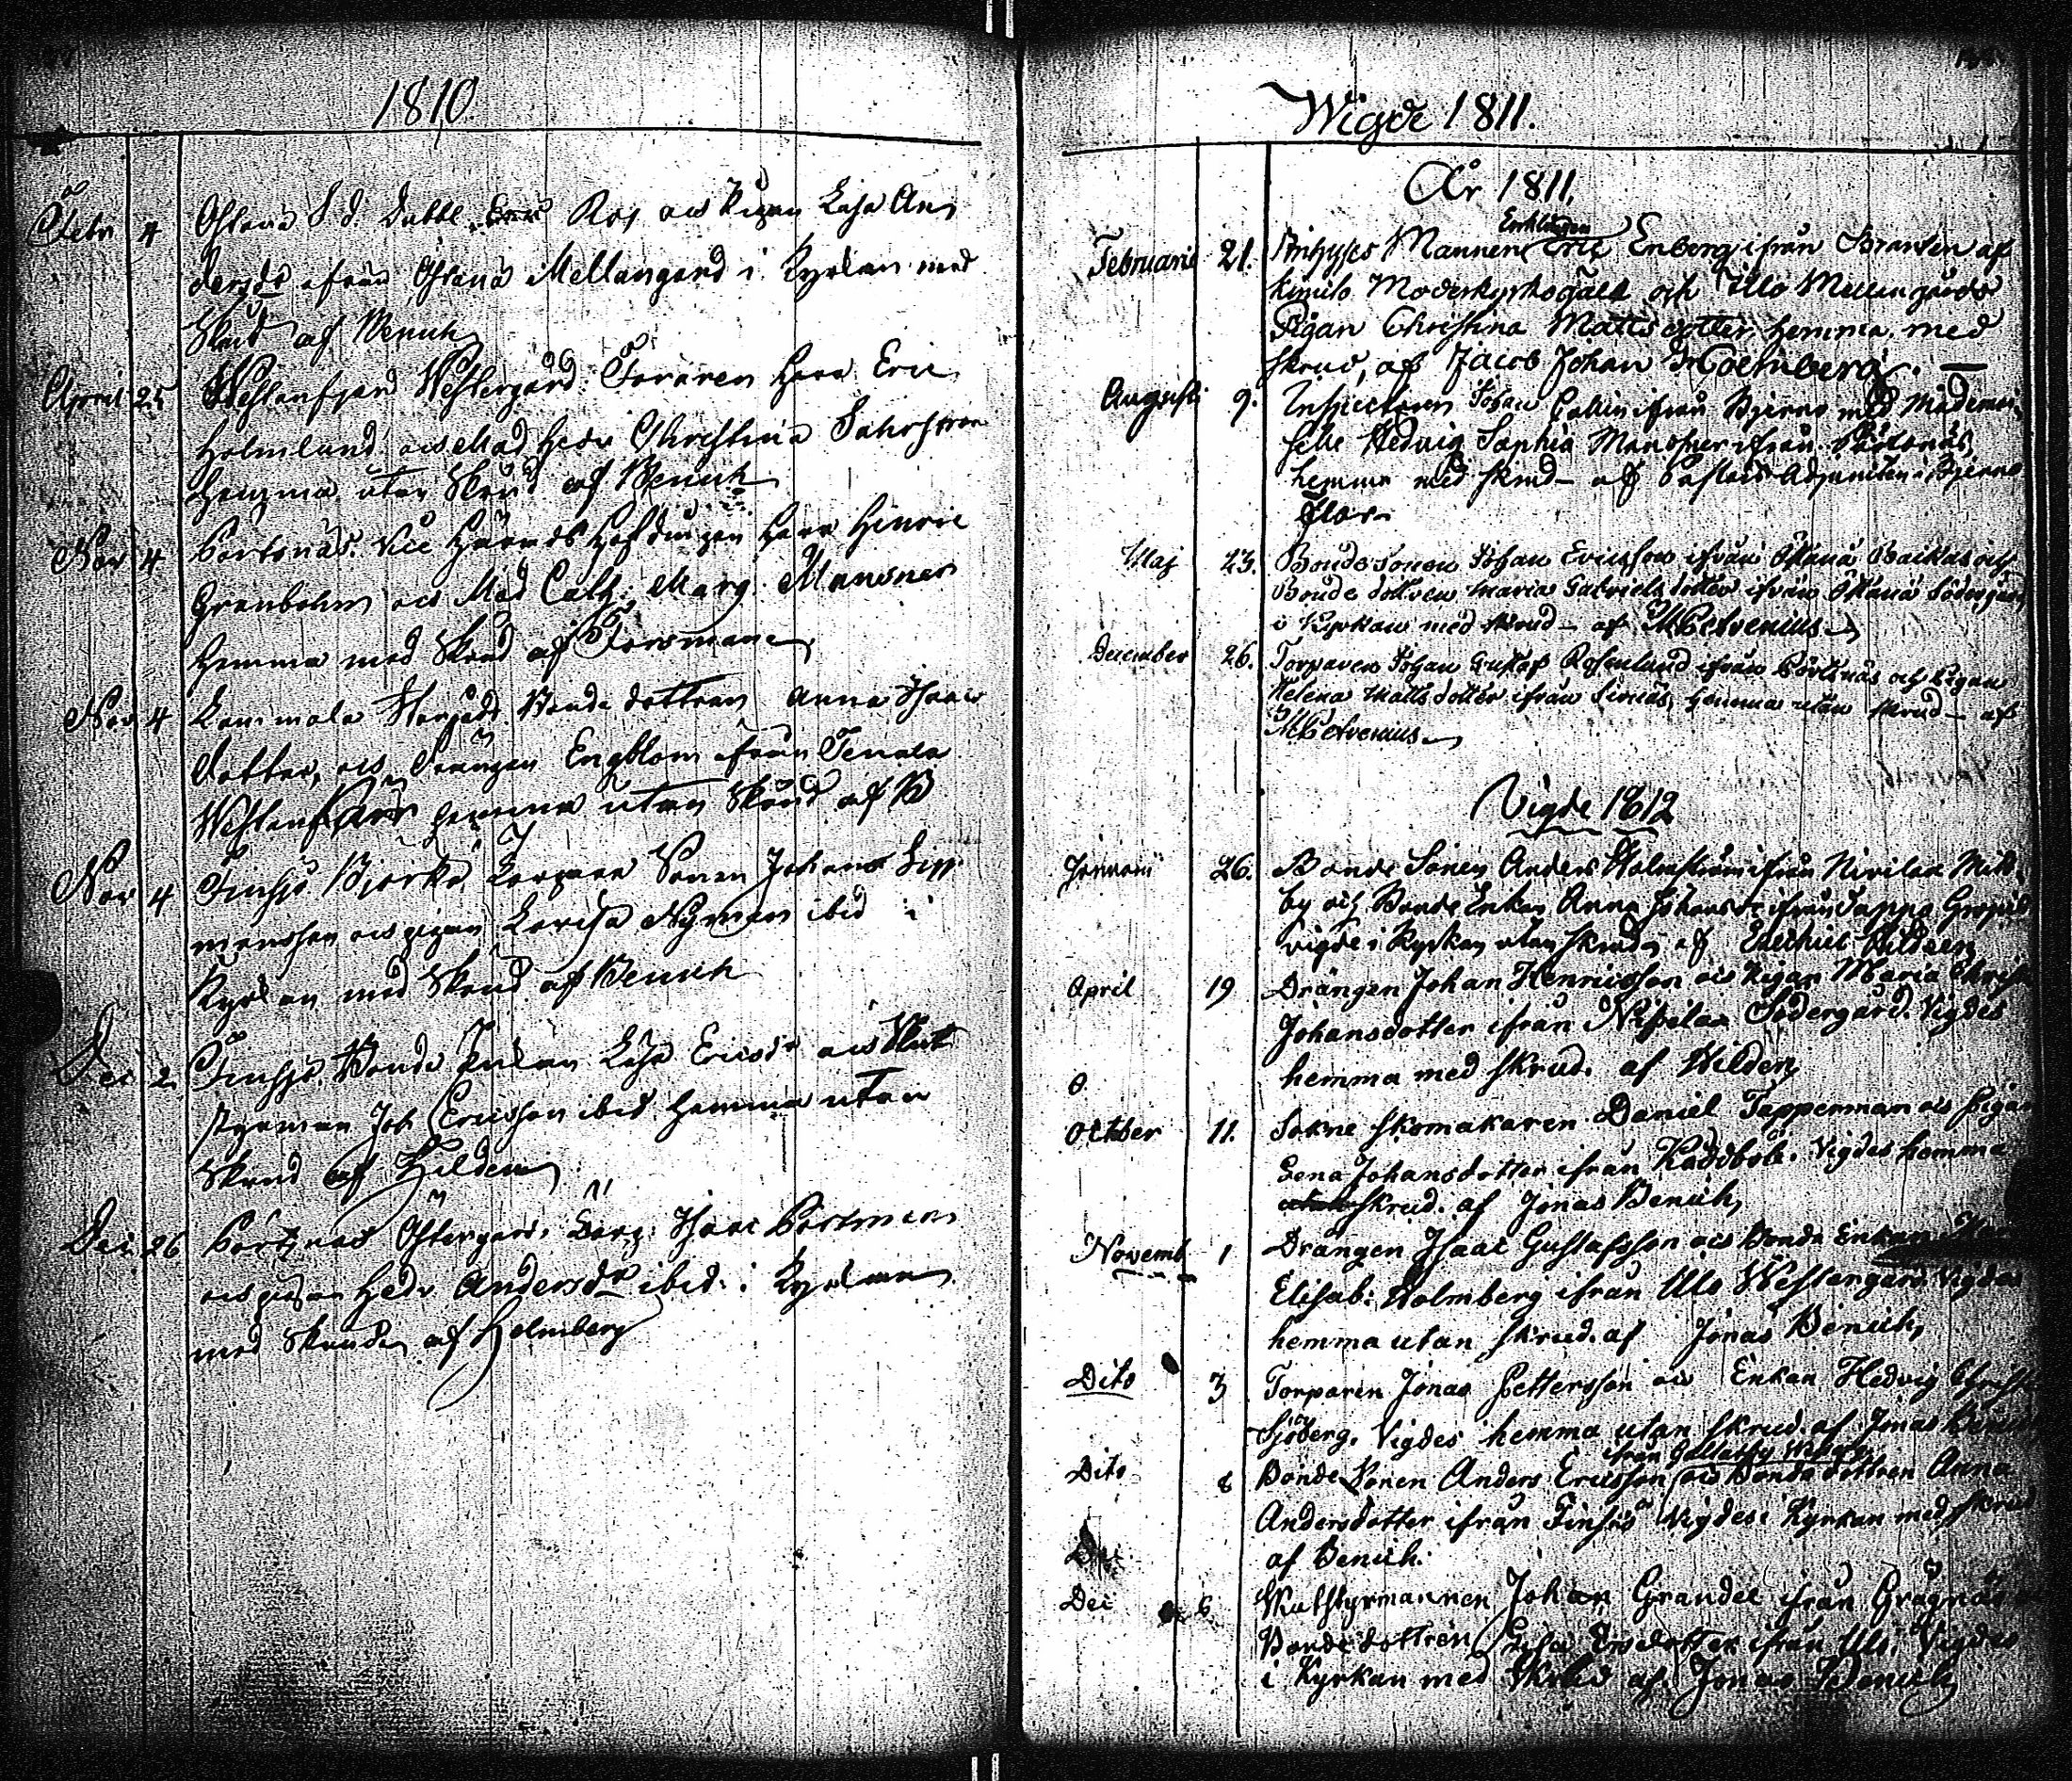 1810.
Febr 4 Ölana S. d. Dubbl. Ros och Pigan Lisa An
dersdr ifrån Öfrana Mellangård i Kyrkan med
Skrud af Benich
April 25 Westanfjerd Westergård. Föraren Herr Eric
Holmlund och Mad Hedv Christina Sahrstrom
hemma utan Skrud af Benich
Nov 4 Pörtsnäs. Vice Härads Höfdingen Herr Henric
Granbohm och Mad Cath: Marg. Mansner
Hemma med Skrud af Forssman
Nov 4 Lammala Norgårds Bonde dottren Anna Isaacs
dotter, och Drängen Engblom ifrån Tenala
hemma utan Skrud af B
Nov 4 Finsjö Björkö Torpare Sonen Johan Sipp
mansson och pigan Lovisa Nyman ibid i
Kyrkan med Skrud af Benich
Dec 2 Finsjö. Bonde Enkan Lisa Ericsdr och Skut
styrman Joh Ericsson ibid hemma utan
Skrud af Hilden
Dec 26 Pörtsnäs Östergård, Torp: Isaac Pörtman
och pigan Hedv. Andersdr ibid. i Kyrkan
med Skrud af Holmberg
Wigde 1811.
År 1811.
Enklingen
Februarii 21. Mannen Eric Enberg ifrån Branten af
Kimito Moderkyrkogäld och Illo Mellangårds
Pigan Christina Mattsdotter, hemma, med
skrud, af Jacob Johan Holmberg. —
Augusti 9. Inspectoren Johan Collin ifrån Bjerno med Mademoi
selle Hedvig Sophia Mansner ifrån Pörtsnäs,
hemma med skrud – af Pastors Adjuncten i Bjerno
Maj 23. Bonde Sonen Johan Ericsson ifrån Ölanå Backas och
Bonde dottren Maria Gabrielsdotter ifrån Ölanå Södergård
i Kyrkan med skrud – af M Cetvenius
December 26. Torparen Johan Gustaf Rosenlund ifrån Pörtsnäs och Pigan
Helena Mattsdotter ifrån Sirnäs, hemma utan skrud – af
M Cetvenius
Vigde 1812
Januarii 26. Bonde Sonen Anders Holmström ifrån Nivilax Mit
by och Bonde Enkan Anna Johansdr ifrån Tappo
vigde i Kyrkan utan skrud af Ezechiel Hilden
April 19 Drängen Johan Henricsson och Pigan Maria Chris
Johansdotter ifrån Nivelax Södergård. Vigdes
hemma med skrud. af Hilden
O.
October 11. Sokne skomakaren Daniel Tapperman och Pigan
Lena Johansdotter ifrån Kaddböle. Vigdes hemma
skrud. af Jonas Benich
Novemb 1 Drängen Isaac Gustafsson och Bonde Enkan
Elisab: Holmberg ifrån Ulo Westangård. Vigdes
hemma utan skrud. af Jonas Benich
Dito 3 Torparen Jonas Pettersson och Enkan Hedvig Christ
Sjöberg. Vigdes hemma utan skrud. af Jonas Benich
ifrån
Dito 8 Bonde Sonen Anders Ericsson och Bonde dottren Anna
Andersdotter ifrån Finsjö Vigdes i Kyrkan med skrud
af Benich.
Dec 6 Skutstyrmannen Johan Grandel ifrån Grågnäs
Bonde dottren Lisa Ersdotter ifrån Ulo. Vigdes
i Kyrkan med Skrud af Jonas Benich